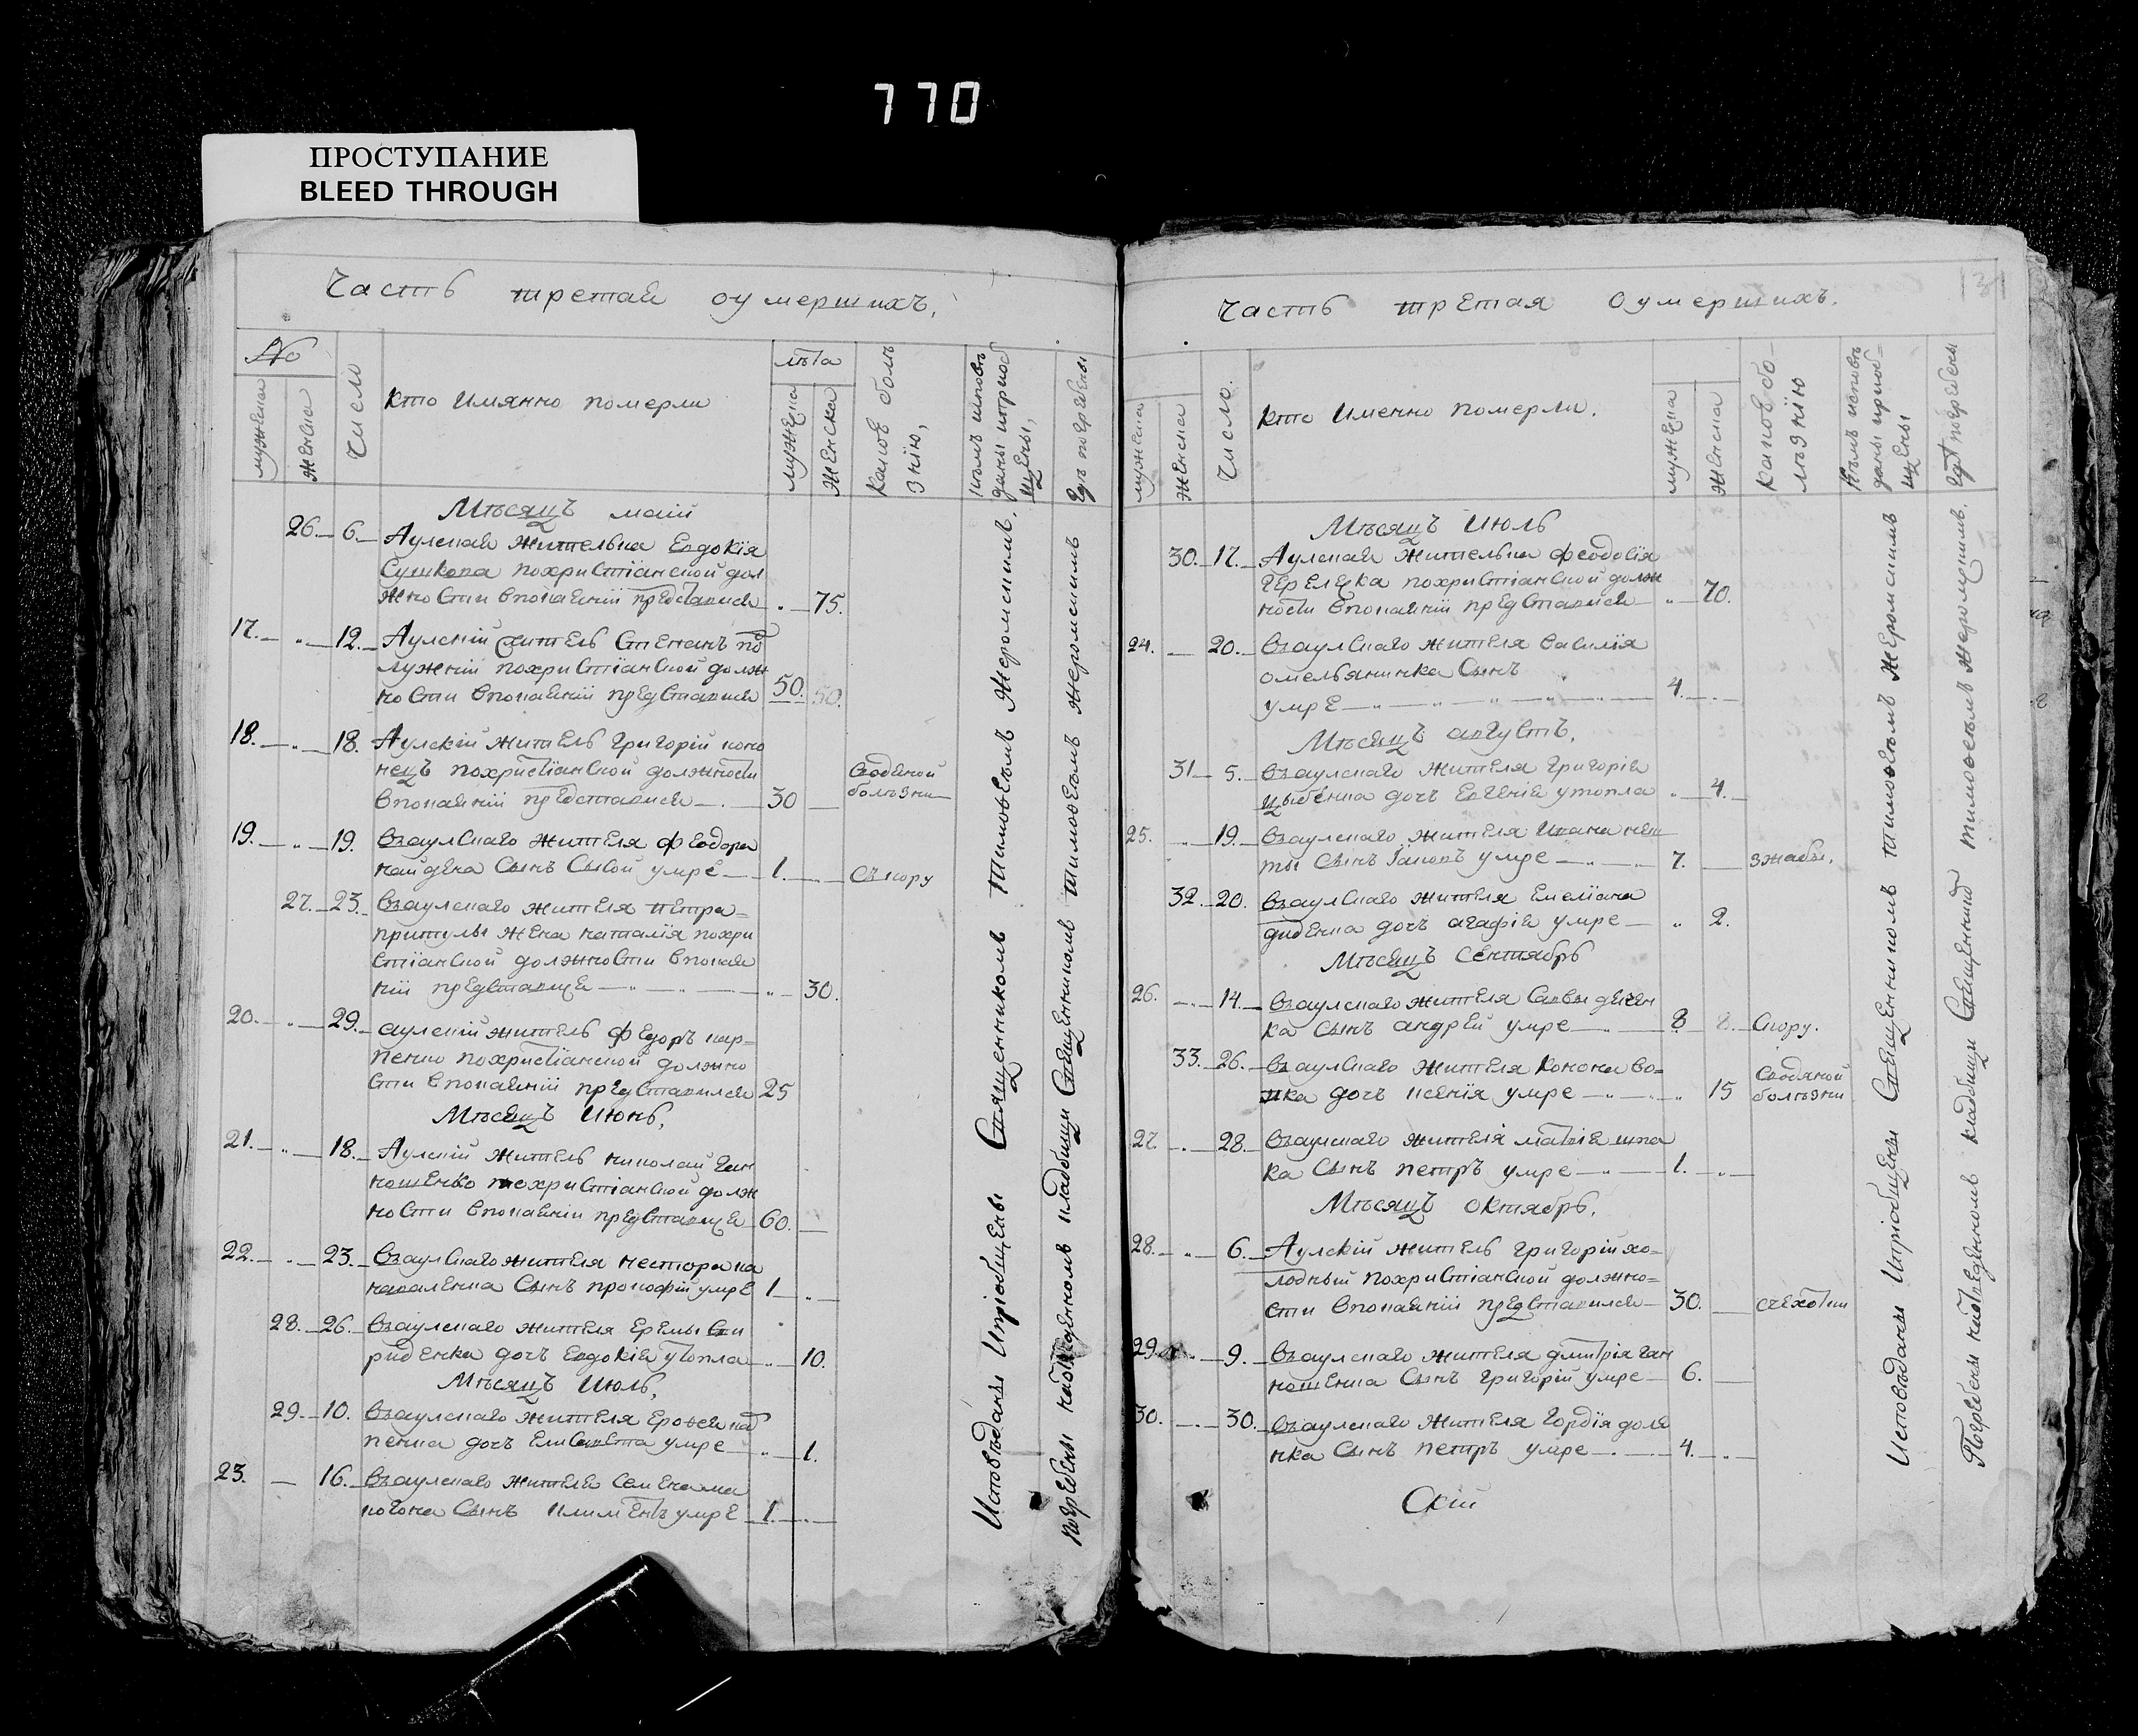 770
ПРОСТУПАНИЕ
BLEED THROUGH
Часть третая оумершихъ.
№
мужеска
женска
Число
кто имянно померли
лѣта
мужеска
женска
какою болѣ
знію,
кѣмъ исповѣ
даны и приоб
щены,
гдѣ погребены
Мѣсяцъ маій
26. 6. Аулская жителька Евдокія
Сушкова похристіанской дол
жности впокаяніи представися „ 75.
17. „ 12. Аулскій житель Стефанъ по
лужній похристіанской долж
ности впокаяніи представися 50. 50.
18. „ 18. Аулскій житель григорій коно
нецъ похристіанской должности
впокаяніи представися 30 Сводяной
болѣзни
19. „ 19. Взаулскаго жителя феодора
найдена Сынъ Сысой умре 1. Съкору
27. 23. Взаулскаго жителя петра
притулы жена наталія похри
стіанской должности впокая
ніи представися „ 30.
20. „ 29. аулскій житель федоръ кар=
пенко похристіанской должно
сти впокаяніи представися 25
Мѣсяцъ Июнь,
21. „ 18. Аулскій житель николай ган
ношенко похристіанской долж
ности впокаяніи представися 60.
22. „ 23. Взаулскаго жителя нестора ка
Сынъ прокофій умре 1 „
28. 26. Взаулскаго жителя еремы Спи
риденка дочъ евдокія утопла „ 10.
Мѣсяцъ Июль,
29. 10. Взаулскаго жителя
пенка дочъ Елисавета умре „ 1.
23. 16. Взаулскаго жителя Семена ма
Сынъ климентъ умре 1. „
Исповѣданы Ипріобщены Священникомъ тимоѳеемъ жеромскимъ.
погребены кладбищи Священникомъ тимоѳеемъ жеромскимъ
Часть третая оумершихъ.
мужеска
женска
Число.
кто именно померли.
мужеска
женска
какою бо-
лѣзнію
кѣмъ исповѣ
даны приоб=
щены
гдѣ погребены
Мѣсяцъ Июль
30. 17. Аулская жителька феодосія
похристіанской долж
ности впокаяніи представися „ 70.
24. 20. Взаулскаго жителя василія
омельяненка Сынъ
умре 4.
Мѣсяцъ августъ.
31 5. Взаулскаго жителя григорія
цыбенка дочъ Евгенія утопла „ 4.
25. „ 19. Взаулскаго жителя Ивана
ты Сынъ Іаковъ умре 7. зжабы.
32. 20. Взаулскаго жителя емеліана
диденка дочъ агафія умре „ 2.
Мѣсяцъ Сентябрь
26. 14. Взаулскаго жителя Саввы
ка Сынъ андрей умре 8 8. Скору.
33. 26. Взаулскаго жителя Конона во=
дочъ ксенія умре „ 15 Сводяной
болѣзни
27. 28. Взаулскаго жителя матвія шпа
ка Сынъ петръ умре 1. „
Мѣсяцъ октябрь.
28. „ 6. Аулскій житель григорій хо=
лодный похристіанской должно=
сти впокаяніи представися 30. счехотки
29. 9. Взаулскаго жителя дмитрія ган
ношенка Сынъ григорій умре 6.
30. 30. Взаулскаго жителя гордія доля
нка Сынъ петръ умре 4. „
Скій
Исповѣданы Ипріобщены Священникомъ тимоѳеемъ жеромскимъ
Погребены кладбищи Священникомъ тимоѳеемъ жеромскимъ.